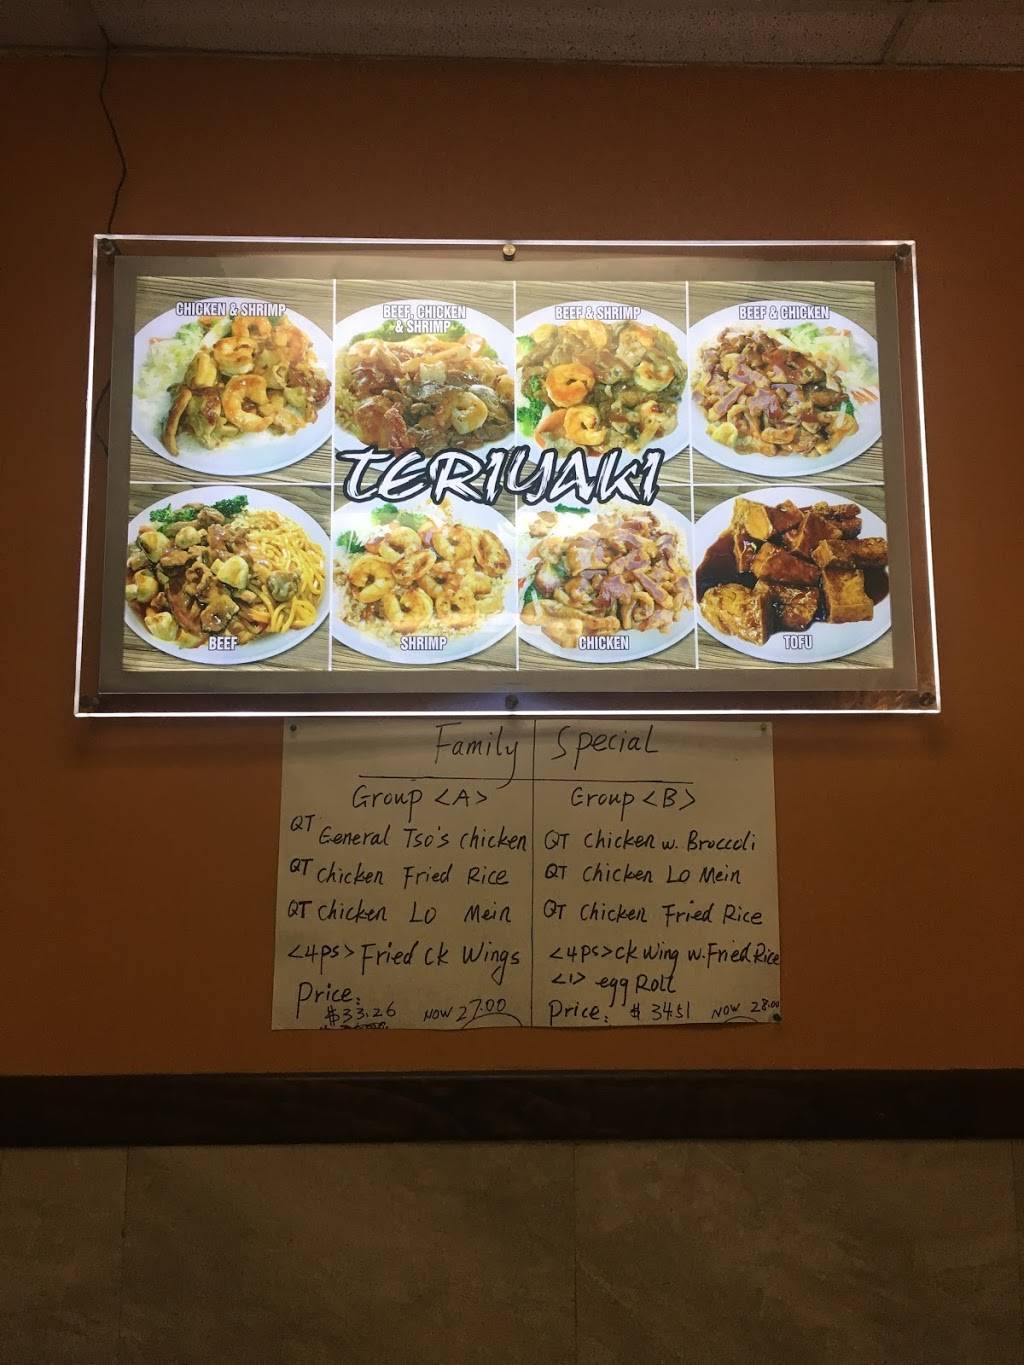 CHICKEN & SHRIMP
BEEF, CHICKEN
& SHRIMP
BEEF & SHRIMP
BEEF & CHICKEN
TERIYAKI
BEEF
SHRIMP
CHICKEN
TOFU
Family Special
Group <A>
QT General Tso's chicken
QT chicken Fried Rice
QT chicken Lo Mein
<4ps> Fried ck Wings
Price:
$33.26 NOW 27.00
Group <B>
QT Chicken w. Broccoli
QT Chicken Lo Mein
QT Chicken Fried Rice
<4ps> ck wing w. Fried Rice
<1> egg Roll
Price: $ 34.51 NOW 28.00